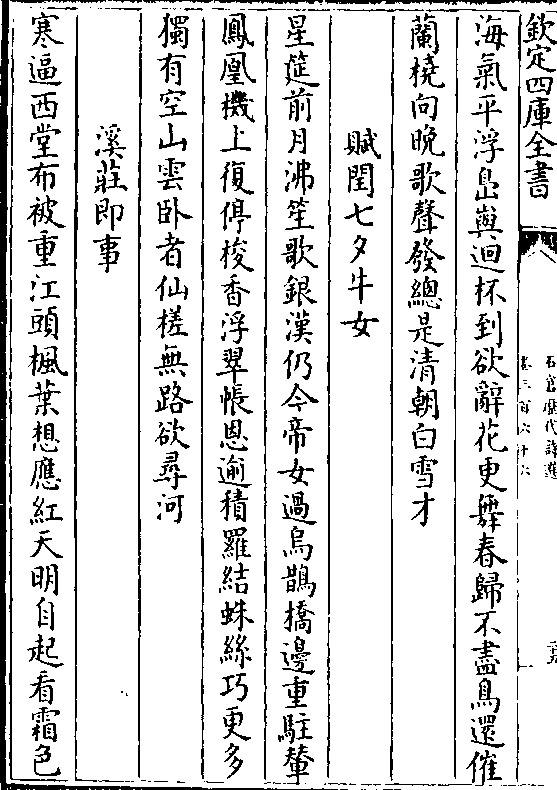 欽定四庫全書
石倉歷代詩選
卷三百六十六
海氣平浮島嶼迴杯到欲辭花更舞春歸不盡鳥還催
蘭橈向晚歌聲發總是清朝白雪才
賦閏七夕牛女
星筵前月沸笙歌銀漢仍今帝女過烏鵲橋邊重駐輦
鳳凰機上復停梭香浮翠帳恩逾積羅結蛛絲巧更多
獨有空山雲卧者仙槎無路欲尋河
溪莊即事
寒逼西堂布被重江頭楓葉想應紅天明自起看霜色